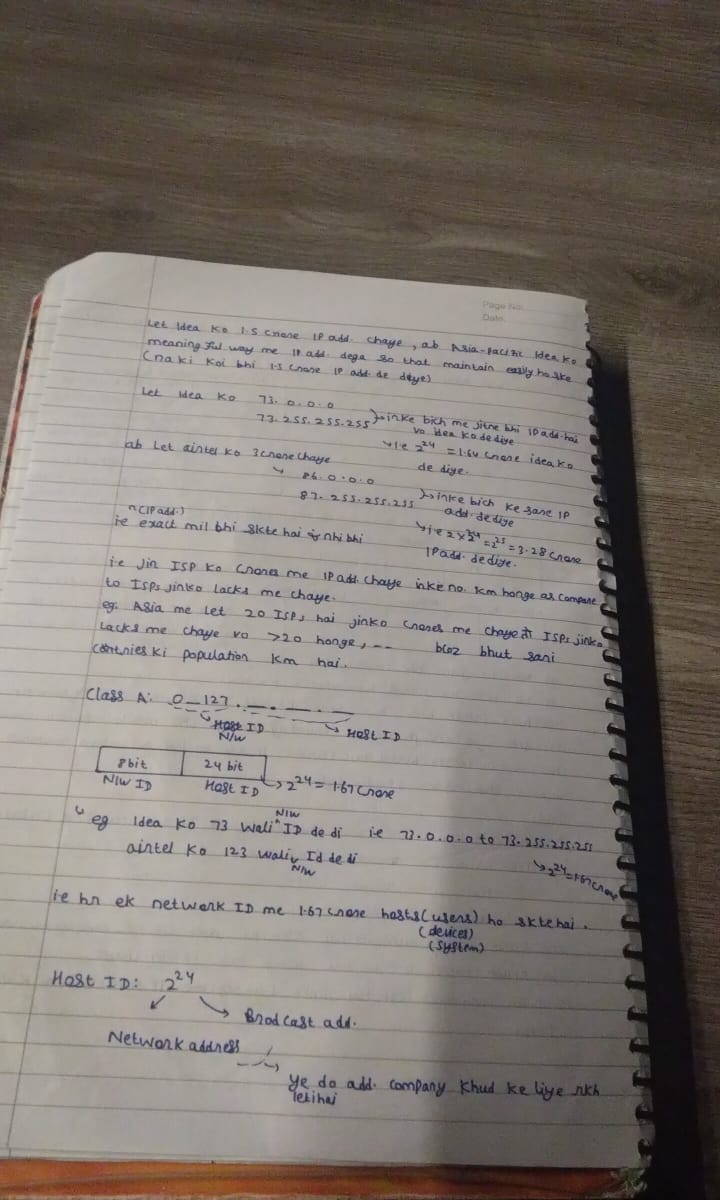 Page No.
Date
Let Idea ko 1.5 crore IP add. chaye, ab Asia-pacific Idea ko
meaningful way me IP add. dega so that maintain easily ho ske
(na ki koi bhi 1.5 crore IP add. de diye)
Let Idea ko 73.0.0.0
73.255.255.255 } inke bich me jitne bhi IP add. hai
vo Idea ko de diye
ie 2^24 = 1.64 crore idea ko
de diye.
ab Let airtel ko 3 crore chaye
86.0.0.0
87.255.255.255 } inke bich ke sare IP
add. de diye
ie 2x2^24 = 2^25 = 3.28 crore
IP add. de diye.
(IP add.)
ie exact mil bhi skte hai nhi bhi
ie jin ISP ko crores me IP add. chaye inke no. km honge as compare
to ISPs jinko lacks me chaye.
eg. Asia me let 20 ISPs hai jinko crores me chaye तो ISPs jinko
lacks me chaye vo >20 honge, -- bcoz bhut sari
contries ki population km hai.
Class A: 0_127 . _ . _ . _
Host ID
N/W
Host ID
8bit 24 bit
N/W ID Host ID → 2^24 = 1.67 crore
N/W
eg Idea ko 73 wali ID de di ie 73.0.0.0 to 73.255.255.255
airtel ko 123 wali Id de di
N/W
2^24 = 1.67 crore
ie hr ek network ID me 1.67 crore hosts (users) ho skte hai.
(devices)
(system)
Host ID: 2^24
Brodcast add.
Network address
ye do add. company khud ke liye rkh
leti hai